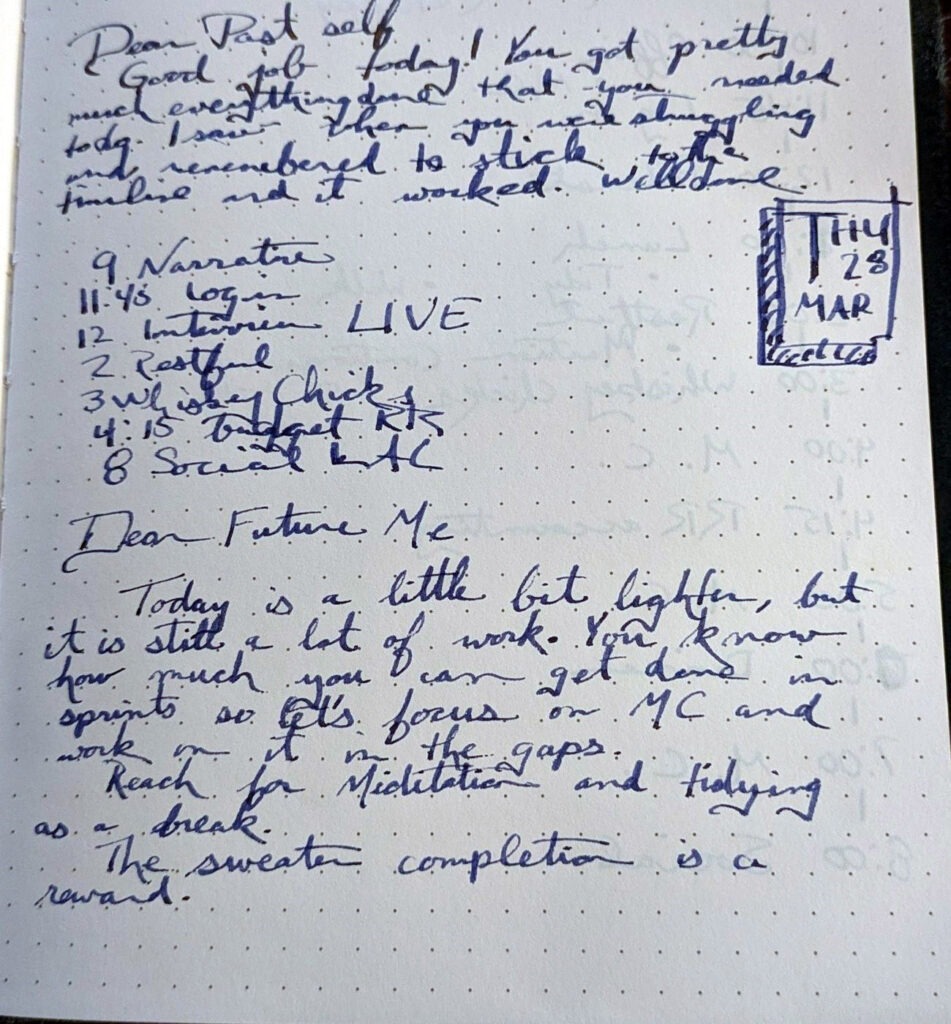 Dear Past self
Good job today! You got pretty
much everything done that you needed
today. I saw when you were struggling
and remembered to stick to the
timeline and it worked. Well done.
THU
28
MAR
9 Narrative
11:45 Login
12 Interview LIVE
2 Restful
3 Whiskey Chicks
4:15 budget
8 Social
Dear Future Me
Today is a little bit lighter, but
it is still a lot of work. You know
how much you can get done in
sprints so let's focus on MC and
work on it in the gaps.
Reach for Meditation and tidying
as a break.
The sweater completion is a
reward.